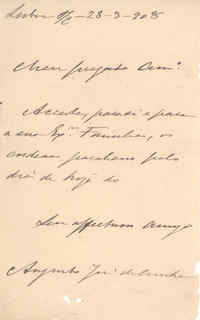 Lisboa 28-3-905
Meu presado Amº.
Acceite, para si e para
a sua Exma. Familia, os
cordeaes parabens pelo
dia de hoje do
Seu affectuoso amigo
Augusto José da Cunha